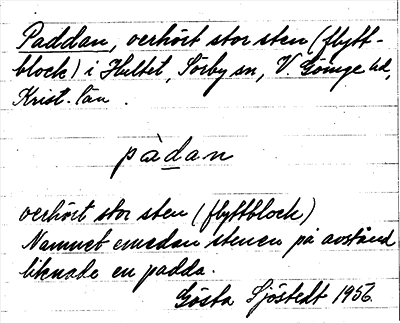 Paddan, oerhört stor sten (flytt-
block) i Hultet, Sörby sn, V. Göinge hd,
Krist. län.
pàdan
oerhört stor sten (flyttblock)
Namnet emedan stenen på avstånd
liknade en padda.
Gösta Sjöstedt 1956.